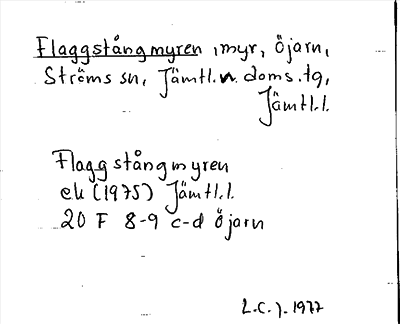 Flaggstångmyren, myr, Öjarn,
Ströms sn, Jämtl.n. doms.tg,
Jämtl.l.
Flaggstångmyren
ek (1975) Jämtl.l.
20 F 8-9 c-d Öjarn
L.C.J. 1977